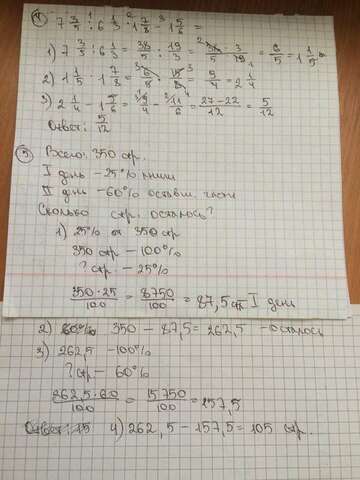 ④ 7 3/5 : 6 1/3 · 1 7/8 - 1 5/6 =
1) 7 3/5 : 6 1/3 = 38/5 : 19/3 = 38/5 · 3/19 = 6/5 = 1 1/5
2) 1 1/5 · 1 7/8 = 6/5 · 15/8 = 9/4 = 2 1/4
3) 2 1/4 - 1 5/6 = 9/4 - 11/6 = 27-22/12 = 5/12
Ответ: 5/12
⑤ Всего: 350 стр.
I день - 25% книги
II день - 60% оставш. части
Сколько стр. осталось?
1) 25% от 350 стр
350 стр - 100%
? стр. - 25%
350·25/100 = 8750/100 = 87,5 стр I день
2) 60% 350 - 87,5 = 262,5 - осталось
3) 262,5 - 100%
? стр - 60%
262,5·60/100 = 15750/100 = 157,5
Ответ: 15 4) 262,5 - 157,5 = 105 стр.